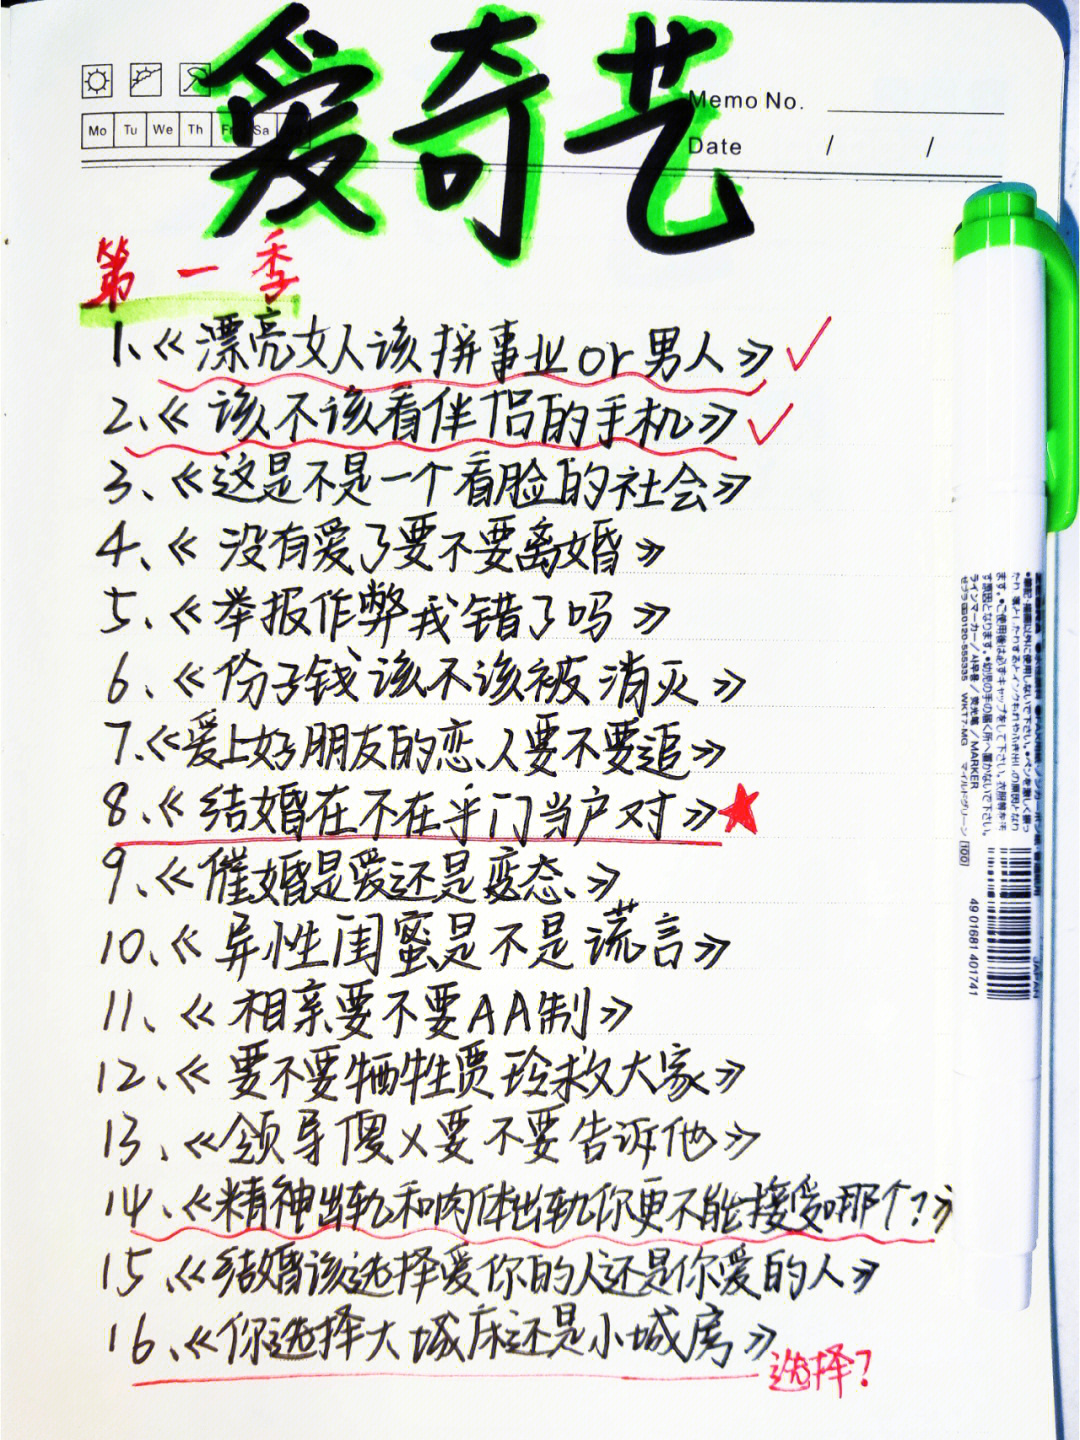 爱奇艺
Memo No.
Mo Tu We Th Fr Sa
Date / /
第一季
1、《漂亮女人该拼事业or男人》✓
2、《该不该看伴侣的手机》✓
3、《这是不是一个看脸的社会》
4、《没有爱了要不要离婚》
5、《举报作弊我错了吗》
6、《份子钱该不该被消灭》
7、《爱上好朋友的恋人要不要追》
8、《结婚在不在乎门当户对》★
9、《催婚是爱还是变态》
10、《异性闺蜜是不是谎言》
11、《相亲要不要AA制》
12、《要不要牺牲贾玲救大家》
13、《领导傻X要不要告诉他》
14、《精神出轨和肉体出轨你更不能接受哪个?》
15、《结婚该选择爱你的人还是你爱的人》
16、《你选择大城床还是小城房》
选择?
ラインマーカー/사무용/荧光笔/MARKER
ゼブラ㈱0120-555335 WKT7-MG マイルドグリーン 100
49 01681 401741
JAPAN